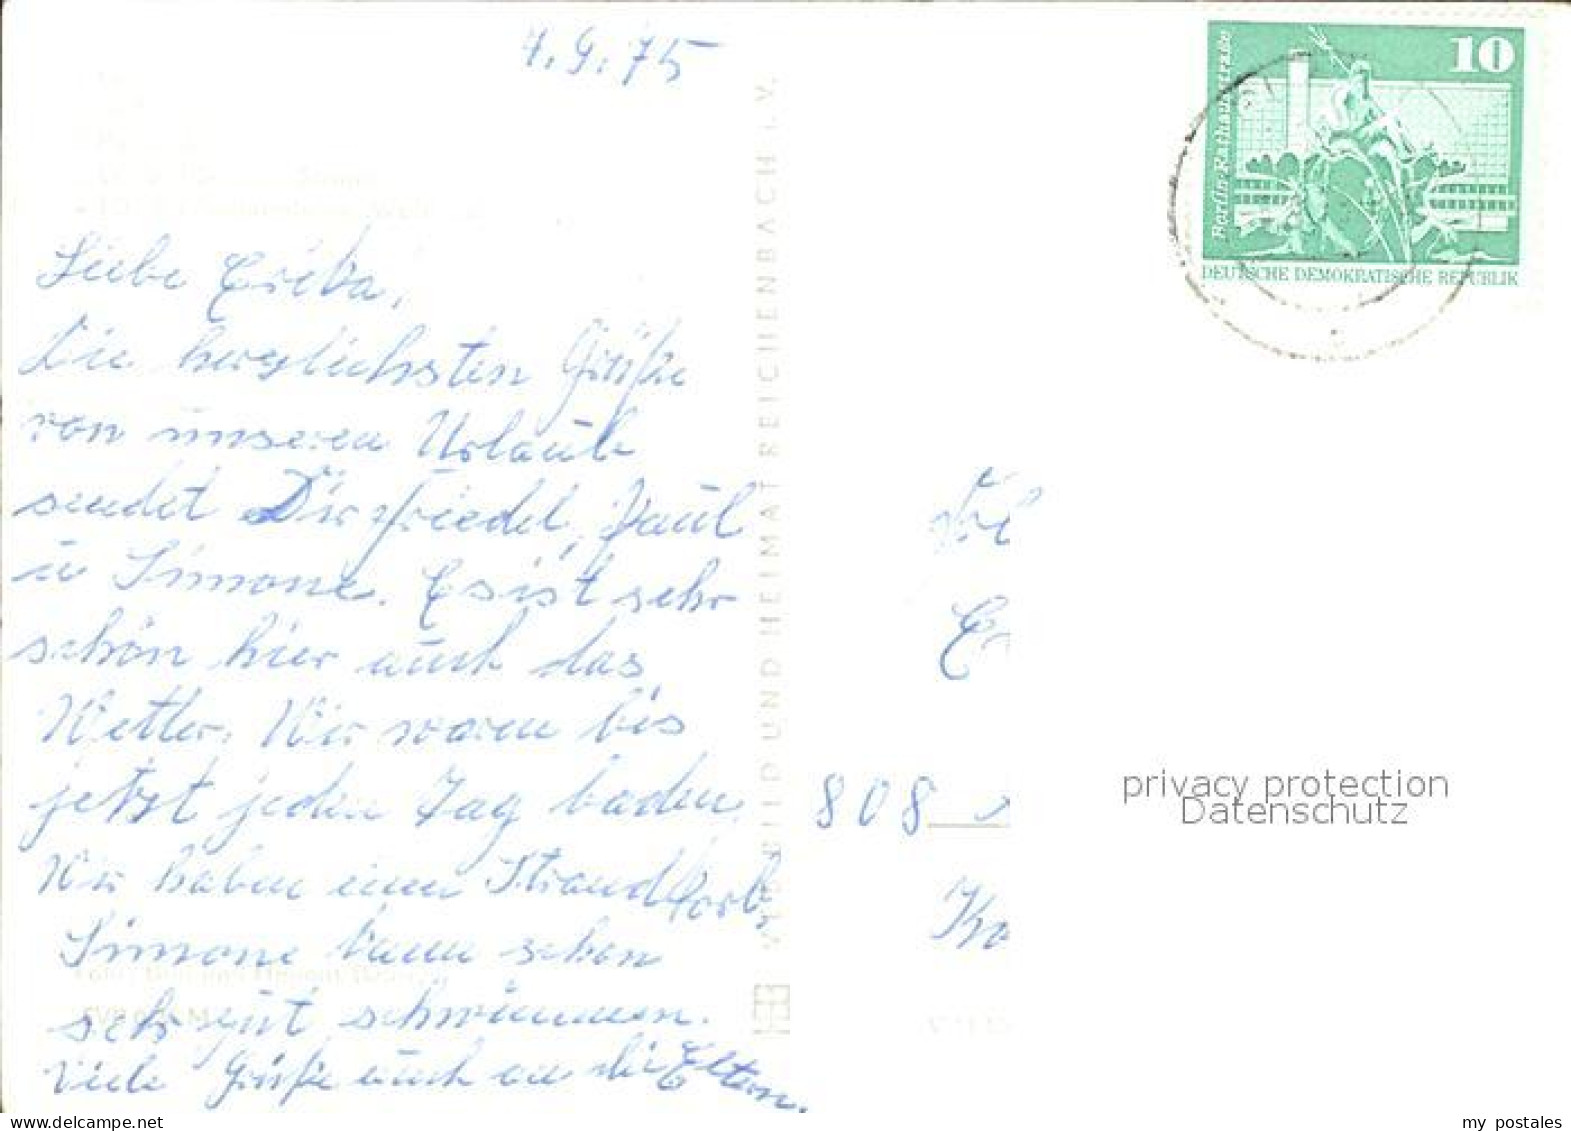 4.9.75
10
Berlin-Rathausstraße
DEUTSCHE DEMOKRATISCHE REPUBLIK
Liebe Erika,
Die herzlichsten Grüße
von unseren Urlaub
sendet Dir Friedel, Paul
u Simone. Es ist sehr
schön hier auch das
Wetter. Wir waren bis
jetzt jeden Tag baden.
Wir haben einen Strandkorb,
Simone kann schon
sehr gut schwimmen.
Viele Grüße auch an die Eltern.
BILD UND HEIMAT REICHENBACH I. V.
808
privacy protection
Datenschutz
www.delcampe.net
my_postales